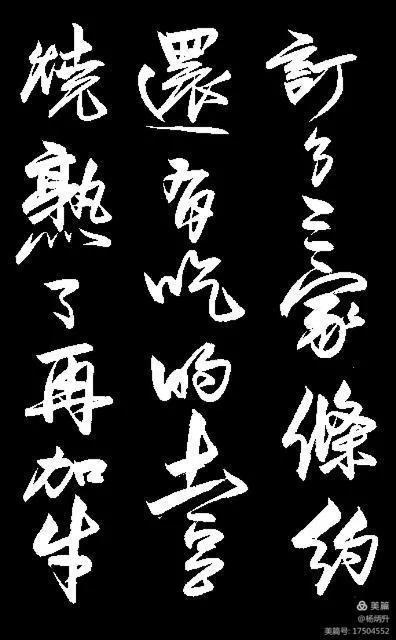 訂了三家條約
還有吃的土豆
燒熟了再加牛
美篇
@杨炳升
美篇号: 17504552